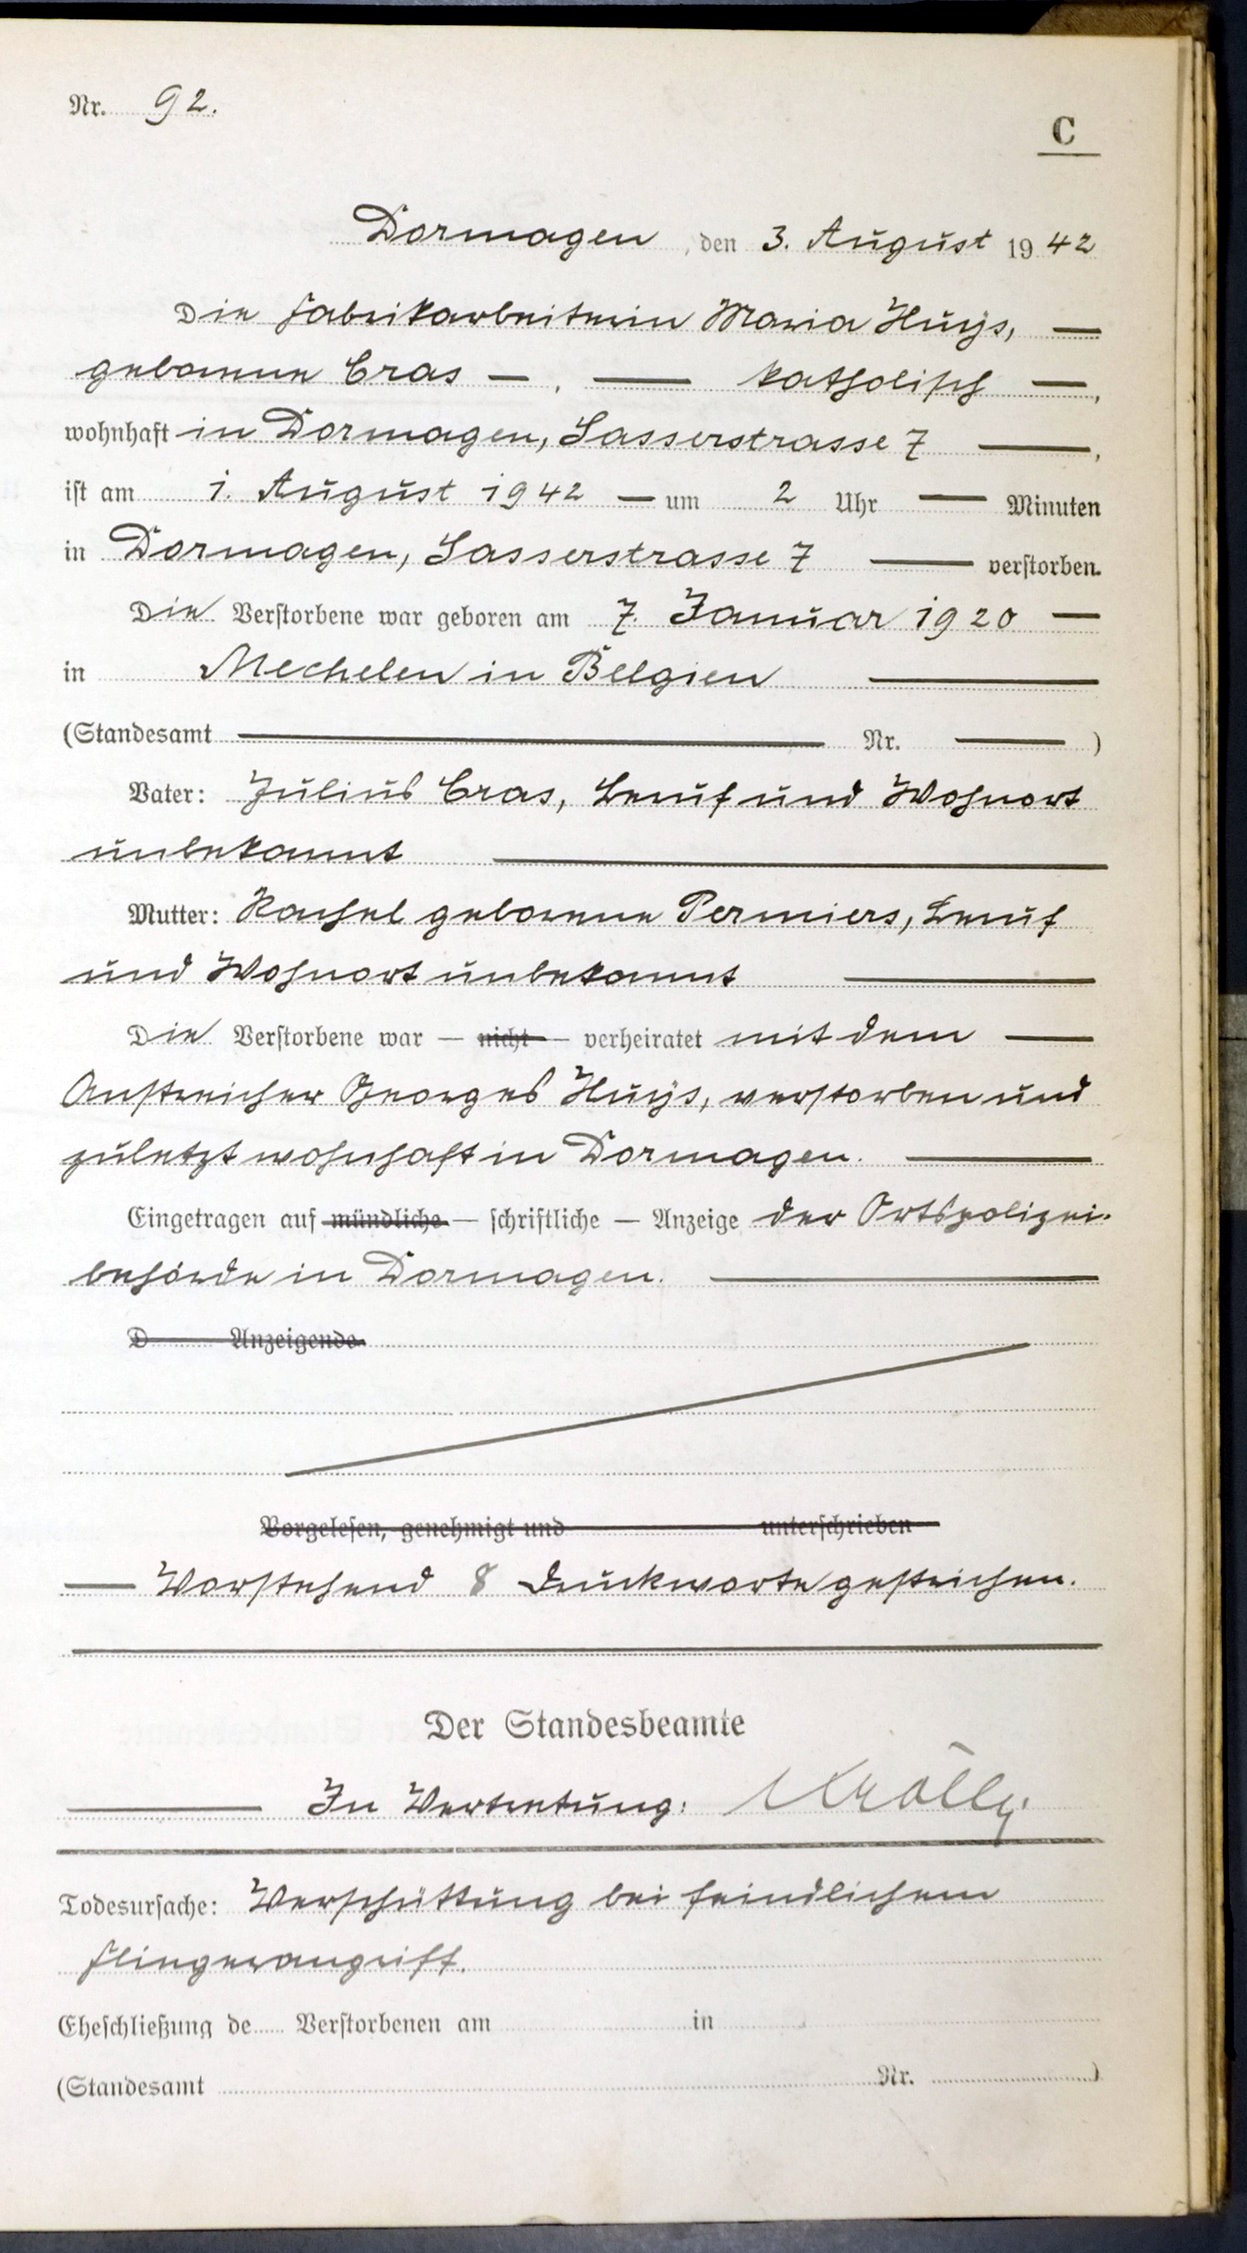 Nr. 92.
C
Dormagen, den 3. August 1942
Die Fabrikarbeiterin Maria Huys, —
geborene Cras —, — katholisch —,
wohnhaft in Dormagen, Sasserstrasse 7 —,
ist am 1. August 1942 — um 2 Uhr — Minuten
in Dormagen, Sasserstrasse 7 — verstorben.
Die Verstorbene war geboren am 7. Januar 1920 —
in Mechelen in Belgien —
(Standesamt — Nr. — )
Vater: Julius Cras, Beruf und Wohnort
unbekannt —
Mutter: Rachel geborene Permiers, Beruf
und Wohnort unbekannt —
Die Verstorbene war — nicht — verheiratet mit dem —
Anstreicher Georges Huys, verstorben und
zuletzt wohnhaft in Dormagen. —
Eingetragen auf mündliche — schriftliche — Anzeige der Ortspolizei-
behörde in Dormagen. —
D Anzeigende
Vorgelesen, genehmigt und unterschrieben
— Vorstehend 8 Druckworte gestrichen.
Der Standesbeamte
— In Vertretung:
Todesursache: Verschüttung bei feindlichem
Fliegerangriff.
Eheschließung de Verstorbenen am in
(Standesamt Nr. )